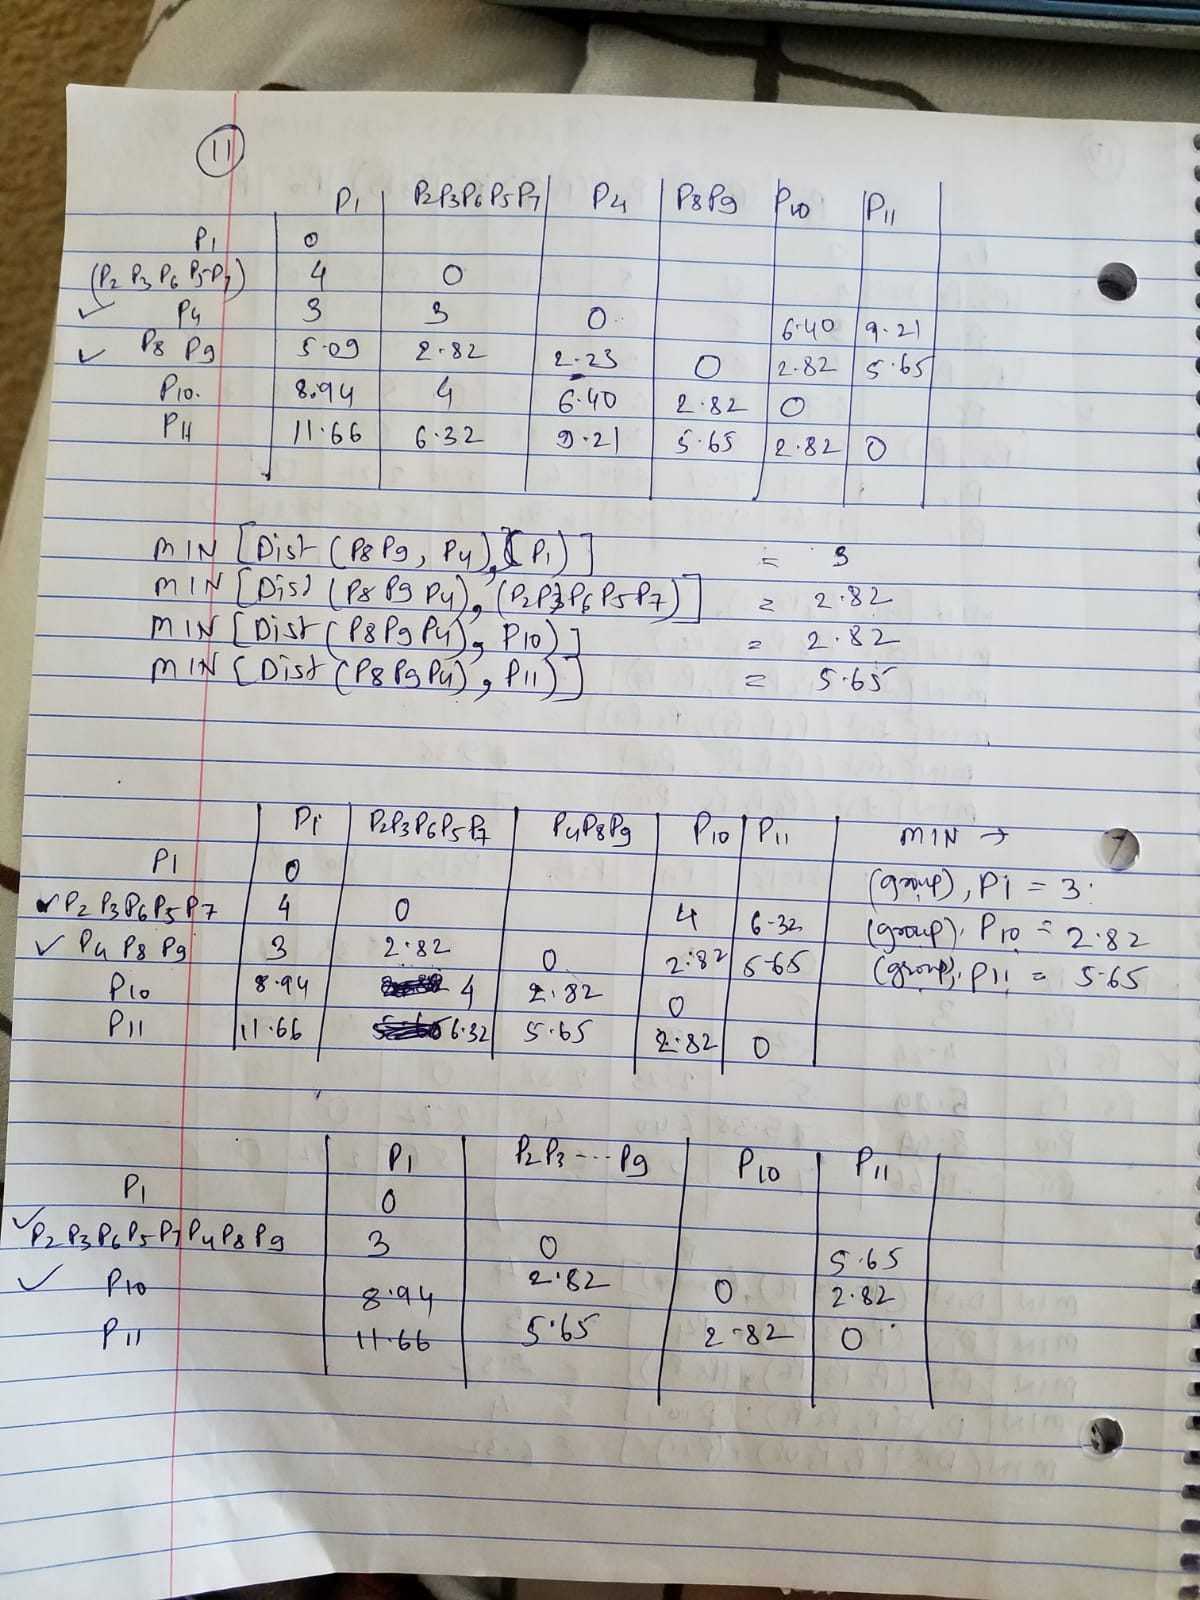 11
P1 | P2P3P6P5P7 | P4 | P8P9 | P10 | P11
P1 | 0
(P2 P3 P6 P5 P7) | 4 | 0
✓ P4 | 3 | 3 | 0 | 6.40 | 9.21
✓ P8 P9 | 5.09 | 2.82 | 2.23 | 0 | 2.82 | 5.65
P10. | 8.94 | 4 | 6.40 | 2.82 | 0
P11 | 11.66 | 6.32 | 9.21 | 5.65 | 2.82 | 0
MIN [Dist (P8 P9, P4), (P1)] = 3
MIN [Dist (P8 P9 P4), (P2P3P6P5P7)] = 2.82
MIN [Dist (P8 P9 P4), P10)] = 2.82
MIN [Dist (P8P9P4), P11)] = 5.65
P1 | P2P3P6P5P7 | P4P8P9 | P10 | P11 | MIN →
P1 | 0 | (group), P1 = 3
✓ P2 P3P6P5P7 | 4 | 0 | 4 | 6.32 | (group), P10 = 2.82
✓ P4 P8 P9 | 3 | 2.82 | 0 | 2.82 | 5.65 | (group), P11 = 5.65
P10 | 8.94 | 4 | 2.82 | 0
P11 | 11.66 | 6.32 | 5.65 | 2.82 | 0
P1 | P2P3---P9 | P10 | P11
P1 | 0
✓ P2 P3P6P5P7P4P8P9 | 3 | 0 | 5.65
✓ P10 | 8.94 | 2.82 | 0 | 2.82
P11 | 11.66 | 5.65 | 2.82 | 0